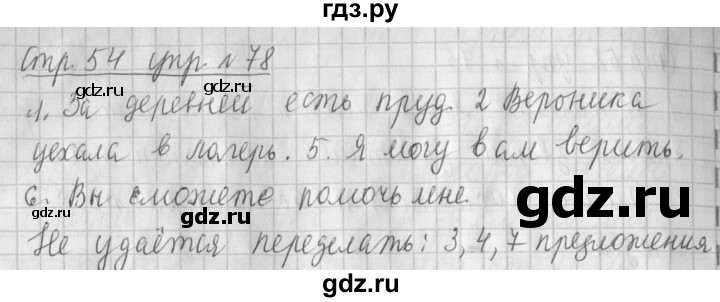 гдз.ру
Стр. 54 упр. №78
1. За деревней есть пруд. 2 Вероника
уехала в лагерь. 5. Я могу вам верить.
6. Вы сможете помочь мне.
Не удаётся переделать: 3, 4, 7 предложения
gdz.ru
gdz.ru
gdz.ru
gdz.ru
gdz.ru
gdz.ru
gdz.ru